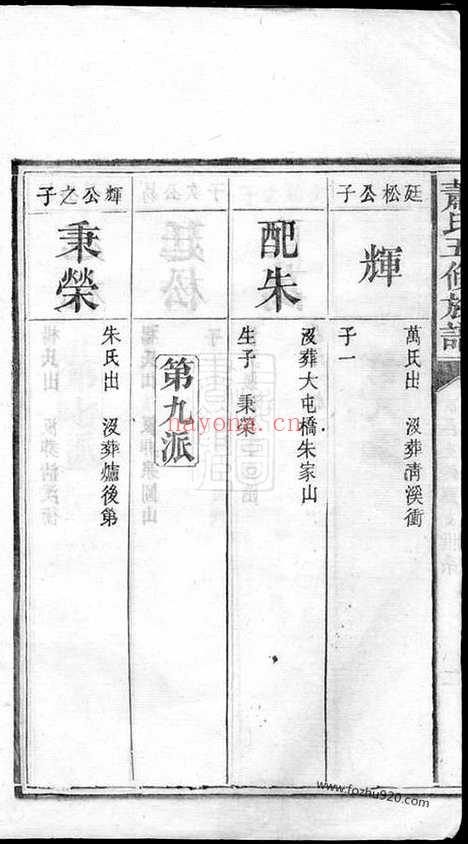 蕭氏五修族譜
廷松公子
輝
萬氏出 沒葬清溪衝
子一
配朱
沒葬大屯橋朱家山
生子 秉榮
第九派
輝公之子
秉榮
朱氏出 沒葬爐後第
nayona.cn
www.fozhu920.com